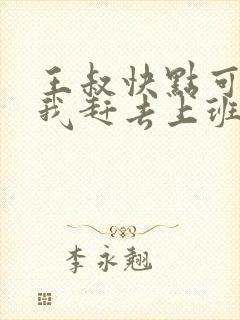 王叔快點可
我赶去上班
李永翘